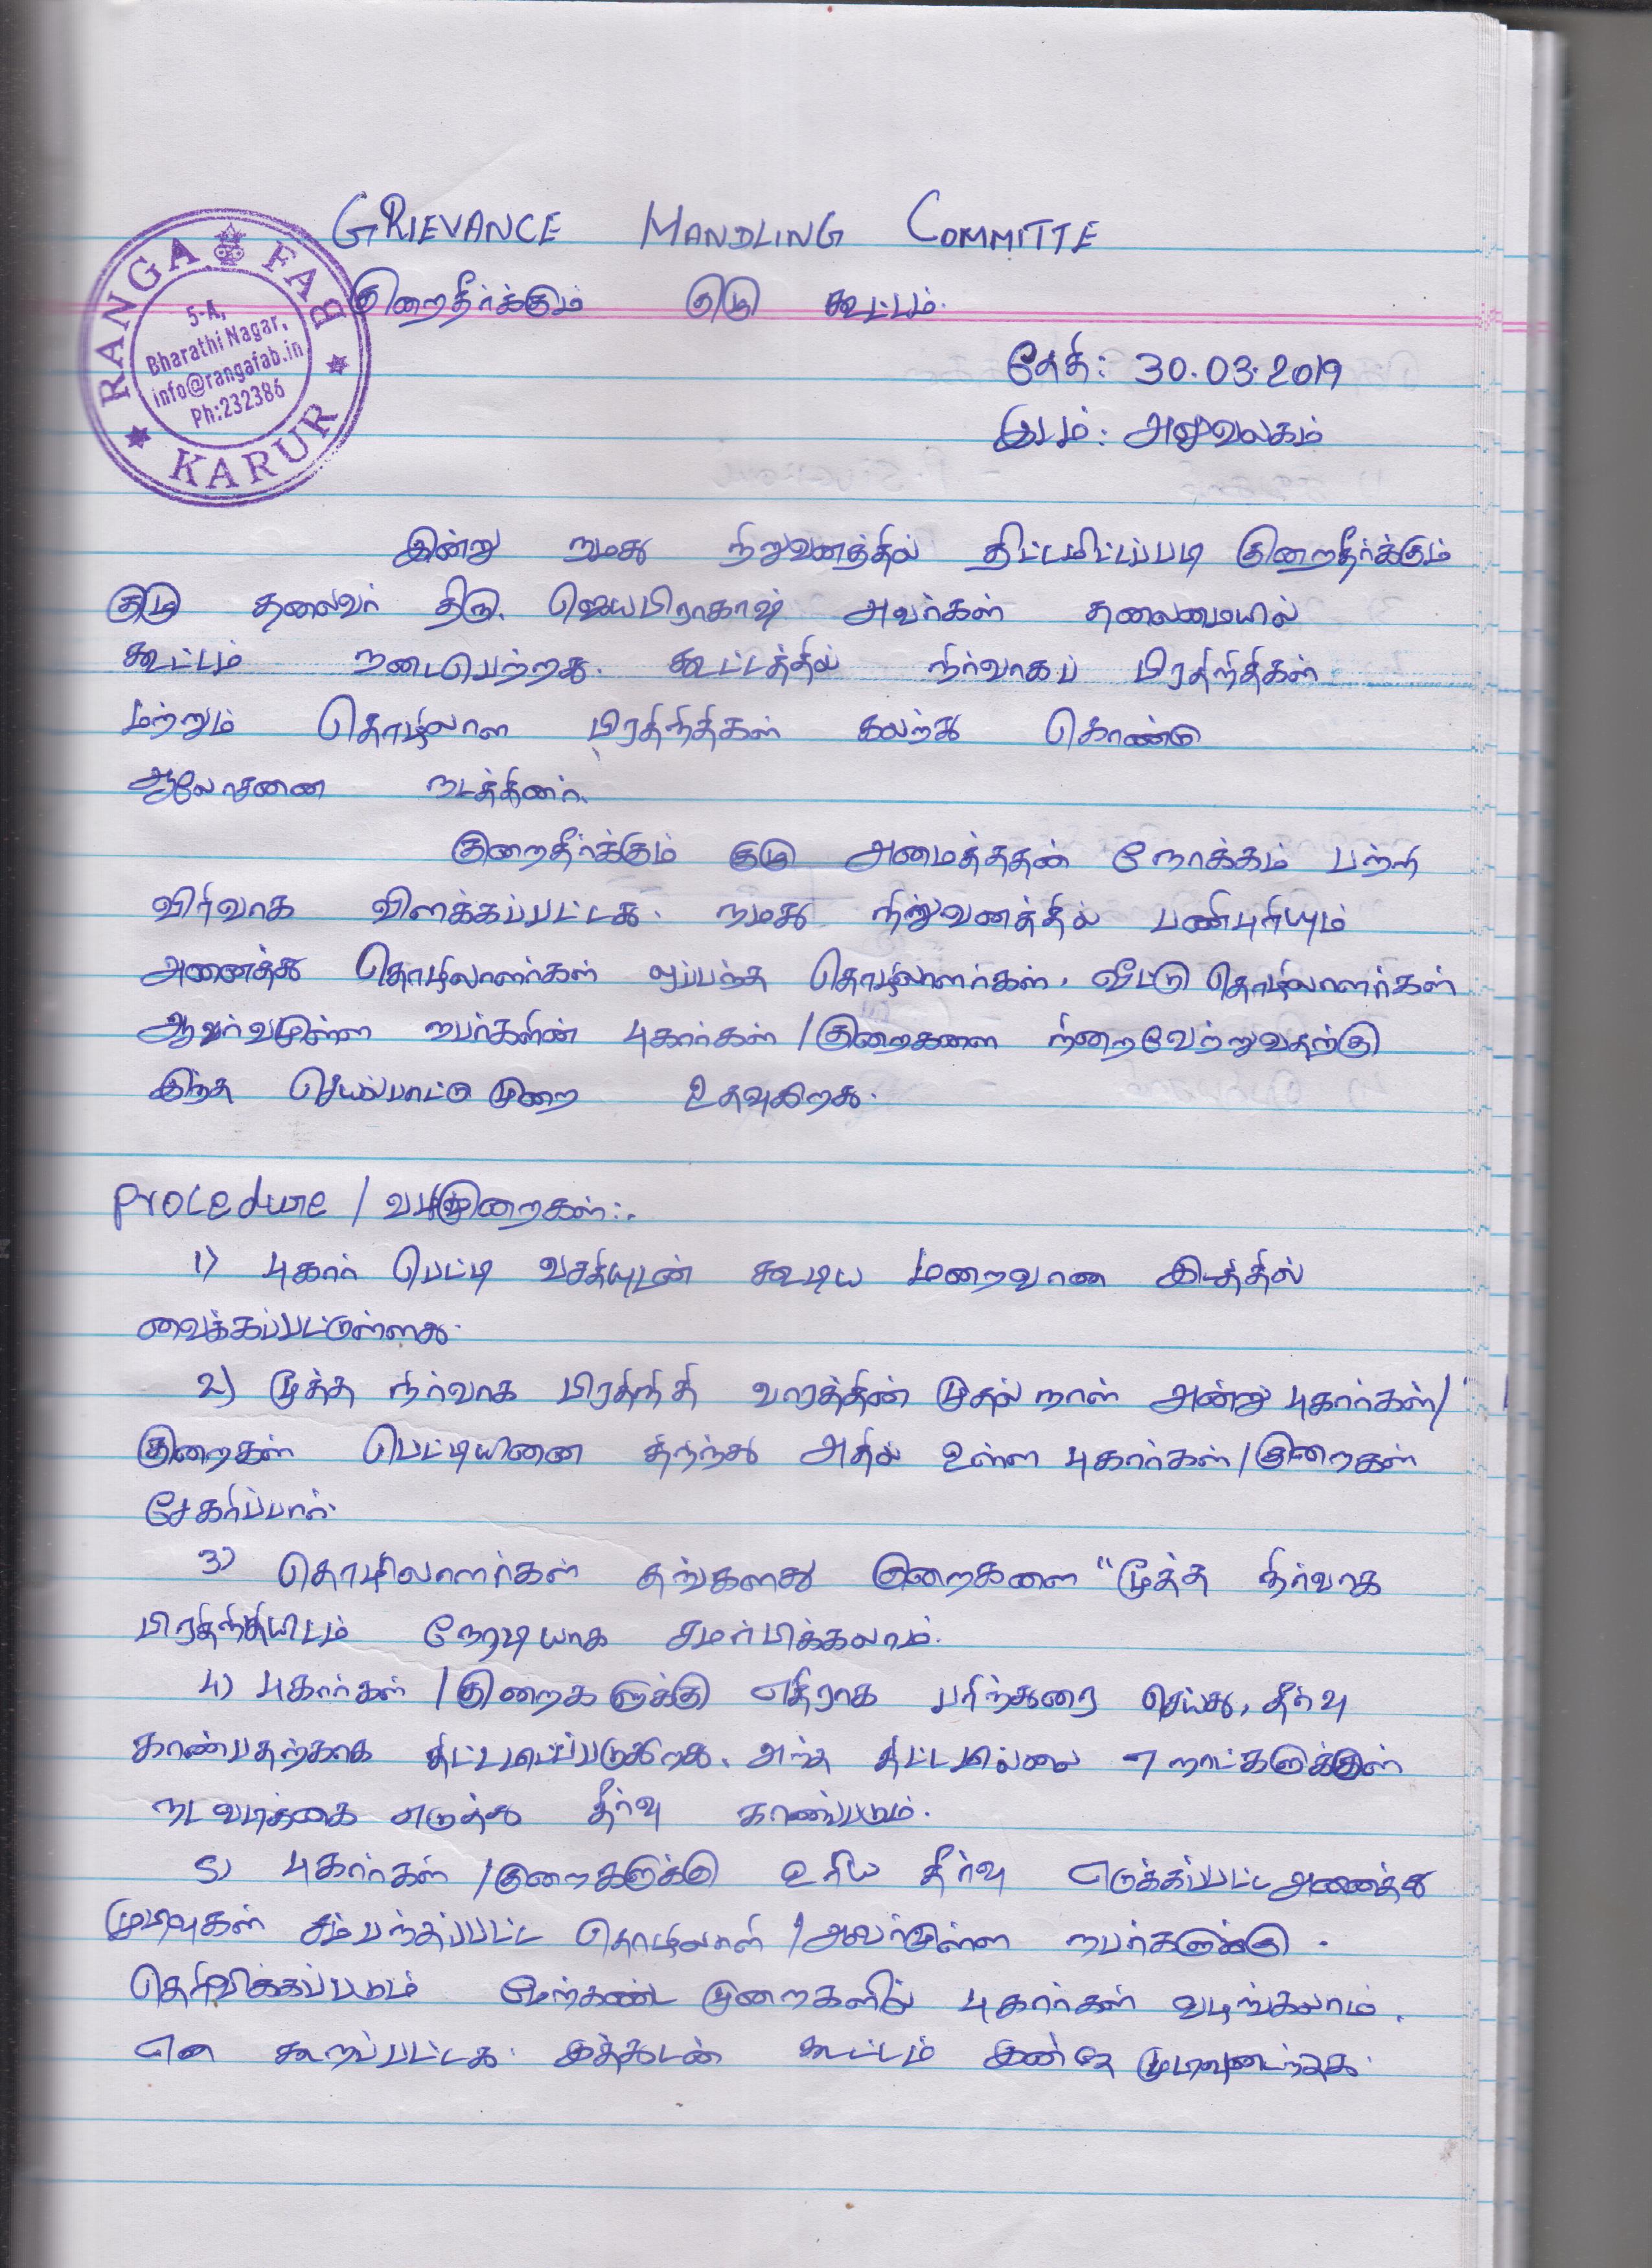 GRIEVANCE HANDLING COMMITTE
குறைதீர்க்கும் குழு கூட்டம்.
RANGA FAB
KARUR
5-A,
Bharathi Nagar,
info@rangafab.in
Ph:232386
தேதி: 30.03.2019
இடம்: அலுவலகம்
இன்று நமது நிறுவனத்தில் திட்டமிட்டப்படி குறைதீர்க்கும்
குழு தலைவர் திரு. ஜெயபிரகாஷ் அவர்கள் தலைமையில்
கூட்டம் நடைபெற்றது. கூட்டத்தில் நிர்வாகப் பிரதிநிதிகள்
மற்றும் தொழிலாள பிரதிநிதிகள் கலந்து கொண்டு
ஆலோசனை நடத்தினர்.
குறைதீர்க்கும் குழு அமைத்ததன் நோக்கம் பற்றி
விரிவாக விளக்கப்பட்டது. நமது நிறுவனத்தில் பணிபுரியும்
அனைத்து தொழிலாளர்கள் ஒப்பந்த தொழிலாளர்கள், வீட்டு தொழிலாளர்கள்
ஆர்வமுள்ள நபர்களின் புகார்கள் / குறைகளை நிறைவேற்றுவதற்கு
இந்த செயல்பாட்டு முறை உதவுகிறது.
Procedure / வழிமுறைகள்:.
1) புகார் பெட்டி வசதியுடன் கூடிய மறைவான இடத்தில்
வைக்கப்பட்டுள்ளது.
2) மூத்த நிர்வாக பிரதிநிதி வாரத்தின் முதல் நாள் அன்று புகார்கள்/
குறைகள் பெட்டியினை திறந்து அதில் உள்ள புகார்கள் / குறைகள்
சேகரிப்பார்.
3) தொழிலாளர்கள் தங்களது குறைகளை "மூத்த நிர்வாக
பிரதிநிதியிடம் நேரடியாக சமர்பிக்கலாம்.
4) புகார்கள் / குறைகளுக்கு எதிராக பரிந்துரை செய்து, தீர்வு
காண்பதற்காக திட்டமிடப்படுகிறது. அந்த 7 நாட்களுக்குள்
நடவடிக்கை எடுத்து தீர்வு காணப்படும்.
5) புகார்கள் / குறைகளுக்கு உரிய தீர்வு எடுக்கப்பட்ட அனைத்து
முடிவுகள் சம்பந்தப்பட்ட தொழிலாளி / ஆர்வமுள்ள நபர்களுக்கு.
தெரிவிக்கப்படும் மேற்கண்ட முறைகளில் புகார்கள் வழங்கலாம்.
என கூறப்பட்டது. இத்துடன் கூட்டம் இனிதே முடிவடைந்தது.